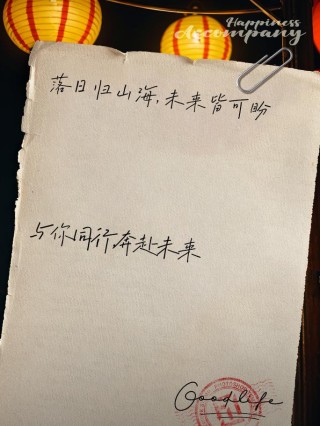 Happiness
Accompany
落日归山海,未来皆可盼
与你同行,奔赴未来
Goodlife